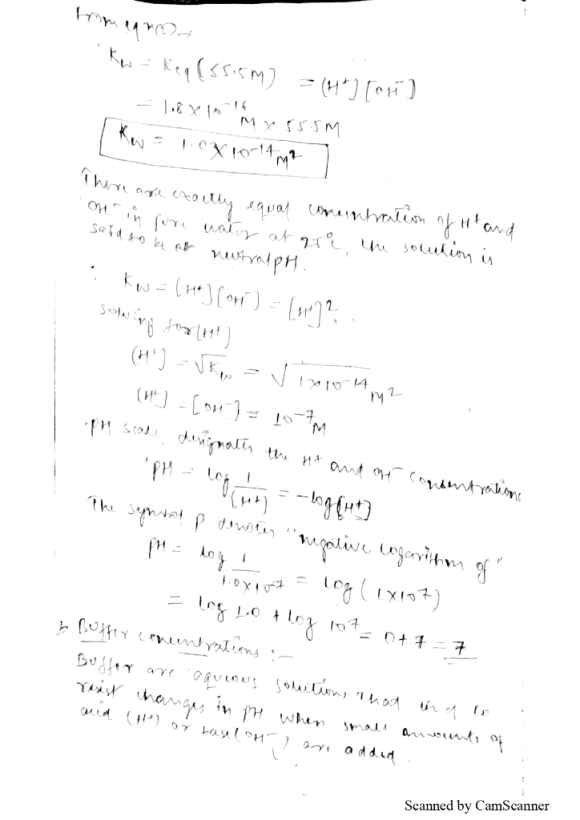 from eqn(2)→
Kw = Keq (55.5M) = (H⁺) [OH⁻]
= 1.8 × 10⁻¹⁶ M × 55.5M
Kw = 1.0 × 10⁻¹⁴ M²
There are exactly equal concentration of H⁺ and
OH⁻ in pure water at 25°C, the solution is
said to be at neutral pH.
∴ Kw = (H⁺) [OH⁻) = [H⁺]².
solving for (H⁺)
(H⁺] = √Kw = √1×10⁻¹⁴ M²
(H⁺) = [OH⁻) = 10⁻⁷M
pH scale designates the H⁺ and OH⁻ concentrations
pH = log 1/(H⁺) = -log[H⁺]
The symbol p denotes "negative logarithm of"
pH = log 1/1.0×10⁻⁷ = log (1×10⁷)
= log 1.0 + log 10⁷ = 0+7 = 7
Buffer concentrations :-
Buffer are aqueous solutions that tend to
resist changes in pH when small amounts of
acid (H⁺) or base (OH⁻) are added.
Scanned by CamScanner